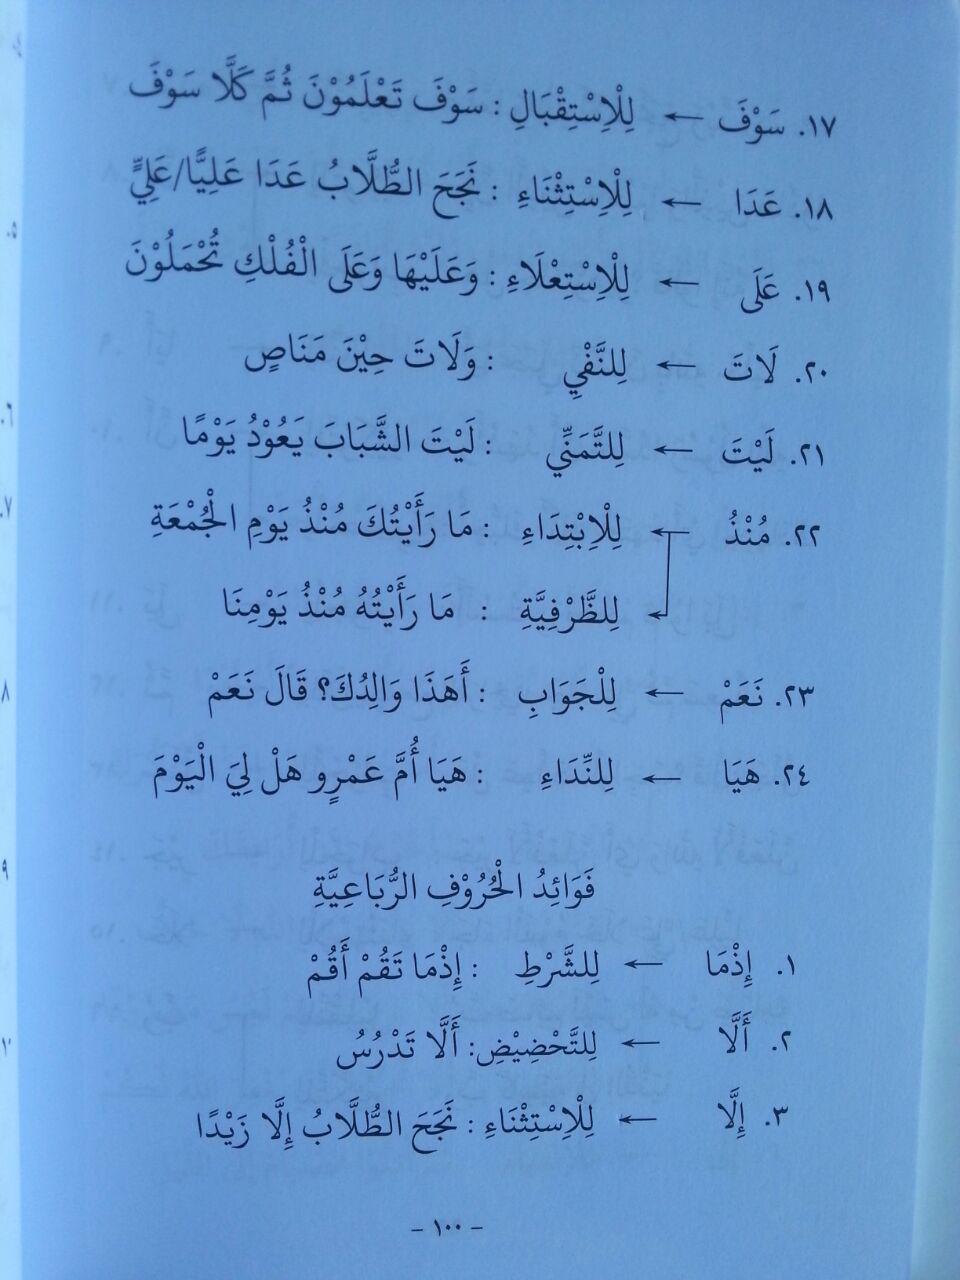 ١٧. سَوْفَ ← لِلْاِسْتِقْبَالِ : سَوْفَ تَعْلَمُوْنَ ثُمَّ كَلَّا سَوْفَ
١٨. عَدَا ← لِلْاِسْتِثْنَاءِ : نَجَحَ الطُّلَّابُ عَدَا عَلِيًّا/عَلِيٍّ
١٩. عَلَى ← لِلْاِسْتِعْلَاءِ : وَعَلَيْهَا وَعَلَى الْفُلْكِ تُحْمَلُوْنَ
٢٠. لَاتَ ← لِلنَّفْيِ : وَلَاتَ حِيْنَ مَنَاصٍ
٢١. لَيْتَ ← لِلتَّمَنِّي : لَيْتَ الشَّبَابَ يَعُوْدُ يَوْمًا
٢٢. مُنْذُ ← لِلْاِبْتِدَاءِ : مَا رَأَيْتُكَ مُنْذُ يَوْمِ الْجُمْعَةِ
← لِلظَّرْفِيَّةِ : مَا رَأَيْتُهُ مُنْذُ يَوْمِنَا
٢٣. نَعَمْ ← لِلْجَوَابِ : أَهَذَا وَالِدُكَ؟ قَالَ نَعَمْ
٢٤. هَيَا ← لِلنِّدَاءِ : هَيَا أُمَّ عَمْرٍو هَلْ لِيَ الْيَوْمَ
فَوَائِدُ الْحُرُوْفِ الرُّبَاعِيَّةِ
١. إِذْمَا ← لِلشَّرْطِ : إِذْمَا تَقُمْ أَقُمْ
٢. أَلَّا ← لِلتَّحْضِيْضِ: أَلَّا تَدْرُسُ
٣. إِلَّا ← لِلْاِسْتِثْنَاءِ : نَجَحَ الطُّلَّابُ إِلَّا زَيْدًا
- ١٠٠ -